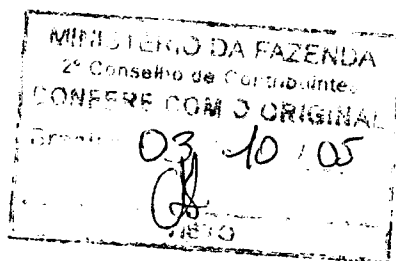 MINISTÉRIO DA FAZENDA
2º Conselho de Contribuintes
CONFERE COM O ORIGINAL
03 10 / 05
VISTO